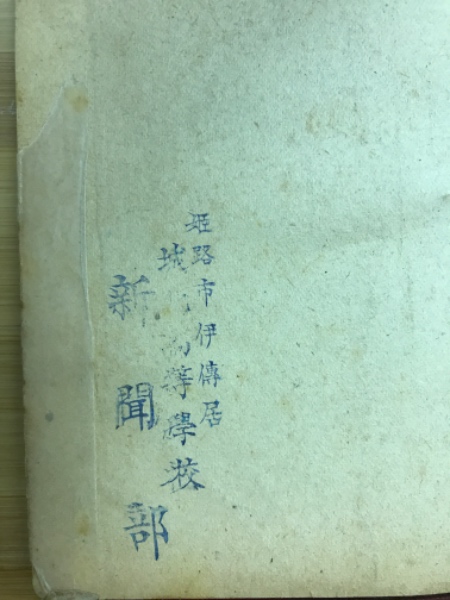 姫路市伊傳居
城高等學校
新聞部